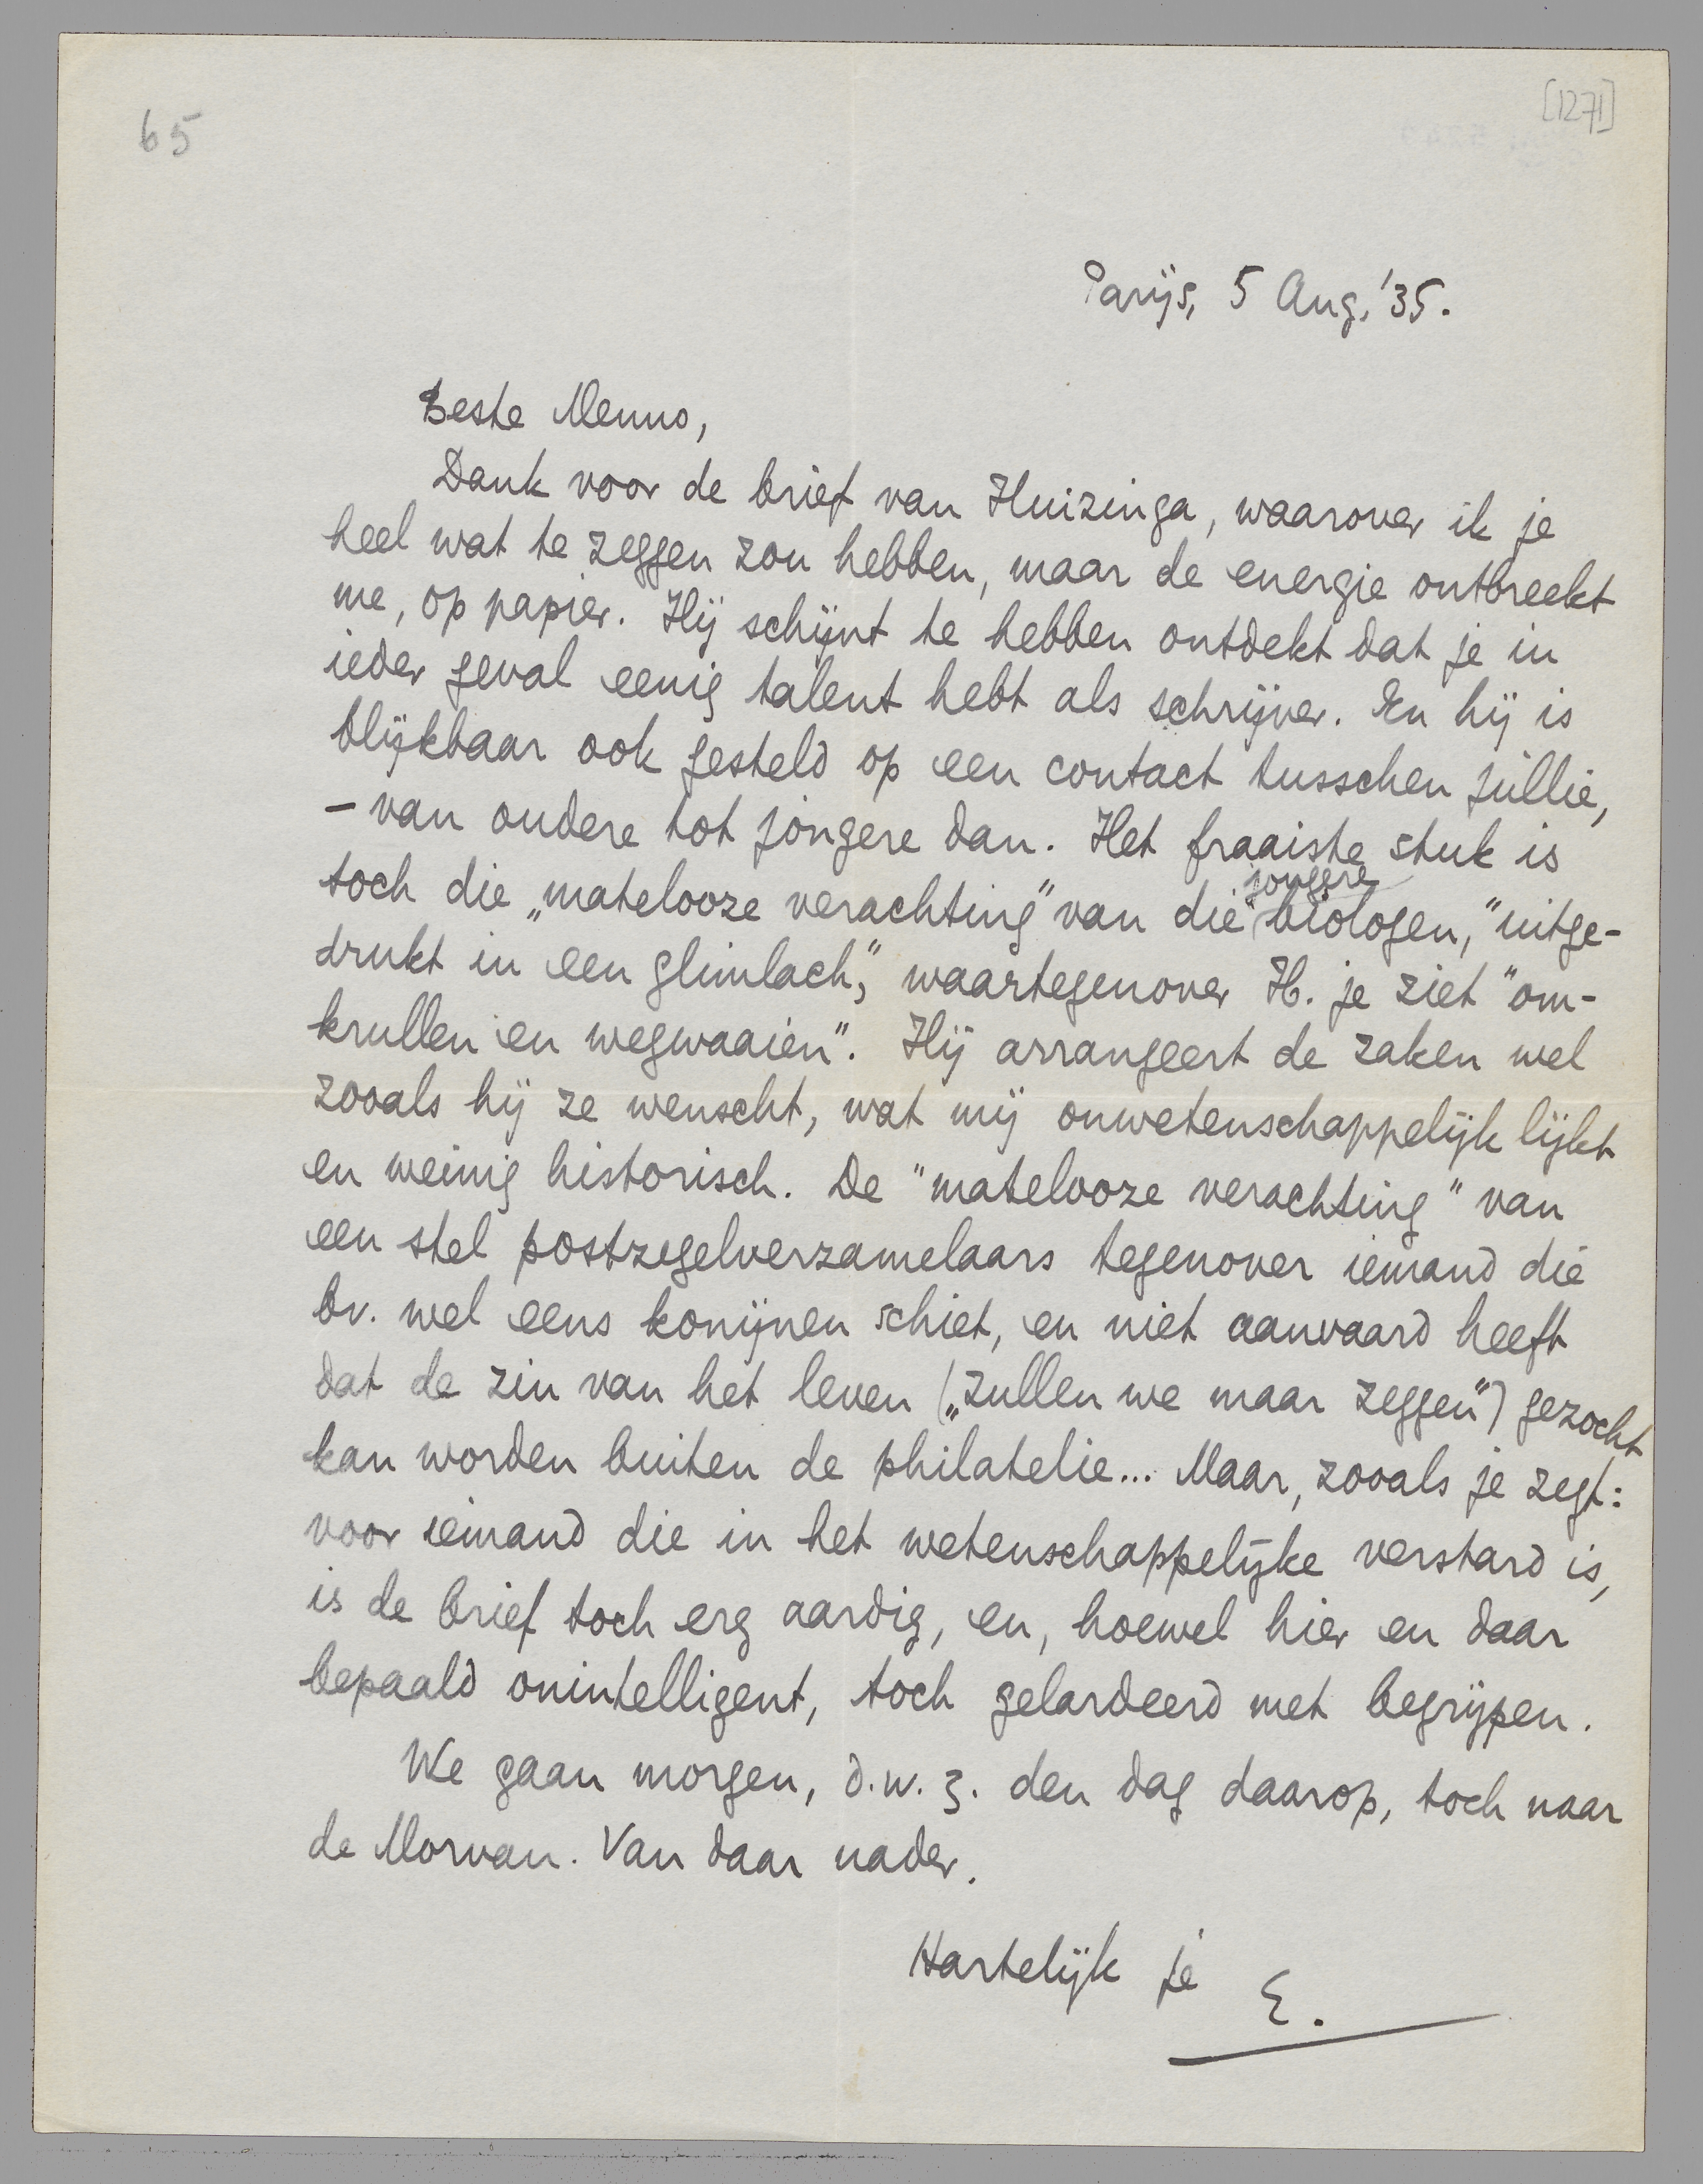 65
[1271]
Parijs, 5 Aug. '35.
Beste Menno,
Dank voor de brief van Huizinga, waarover ik je
heel wat te zeggen zou hebben, maar de energie ontbreekt
me, op papier. Hij schijnt te hebben ontdekt dat je in
ieder geval eenig talent hebt als schrijver. En hij is
blijkbaar ook gesteld op een contact tusschen jullie,
– van oudere tot jongere dan. Het fraaiste stuk is
jongere
toch die „matelooze verachting" van die "biologen," uitge-
drukt in een glimlach," waartegenover H. je ziet "om-
krullen en wegwaaien". Hij arrangeert de zaken wel
zooals hij ze wenscht, wat mij onwetenschappelijk lijkt
en weinig historisch. De "matelooze verachting" van
een stel postzegelverzamelaars tegenover iemand die
bv. wel eens konijnen schiet, en niet aanvaard heeft
dat de zin van het leven („zullen we maar zeggen") gezocht
kan worden buiten de philatelie... Maar, zooals je zegt:
voor iemand die in het wetenschappelijke verstard is,
is de brief toch erg aardig, en, hoewel hier en daar
bepaald onintelligent, toch gelardeerd met begrijpen.
We gaan morgen, d.w.z. den dag daarop, toch naar
de Morvan. Van daar nader.
Hartelijk je E.